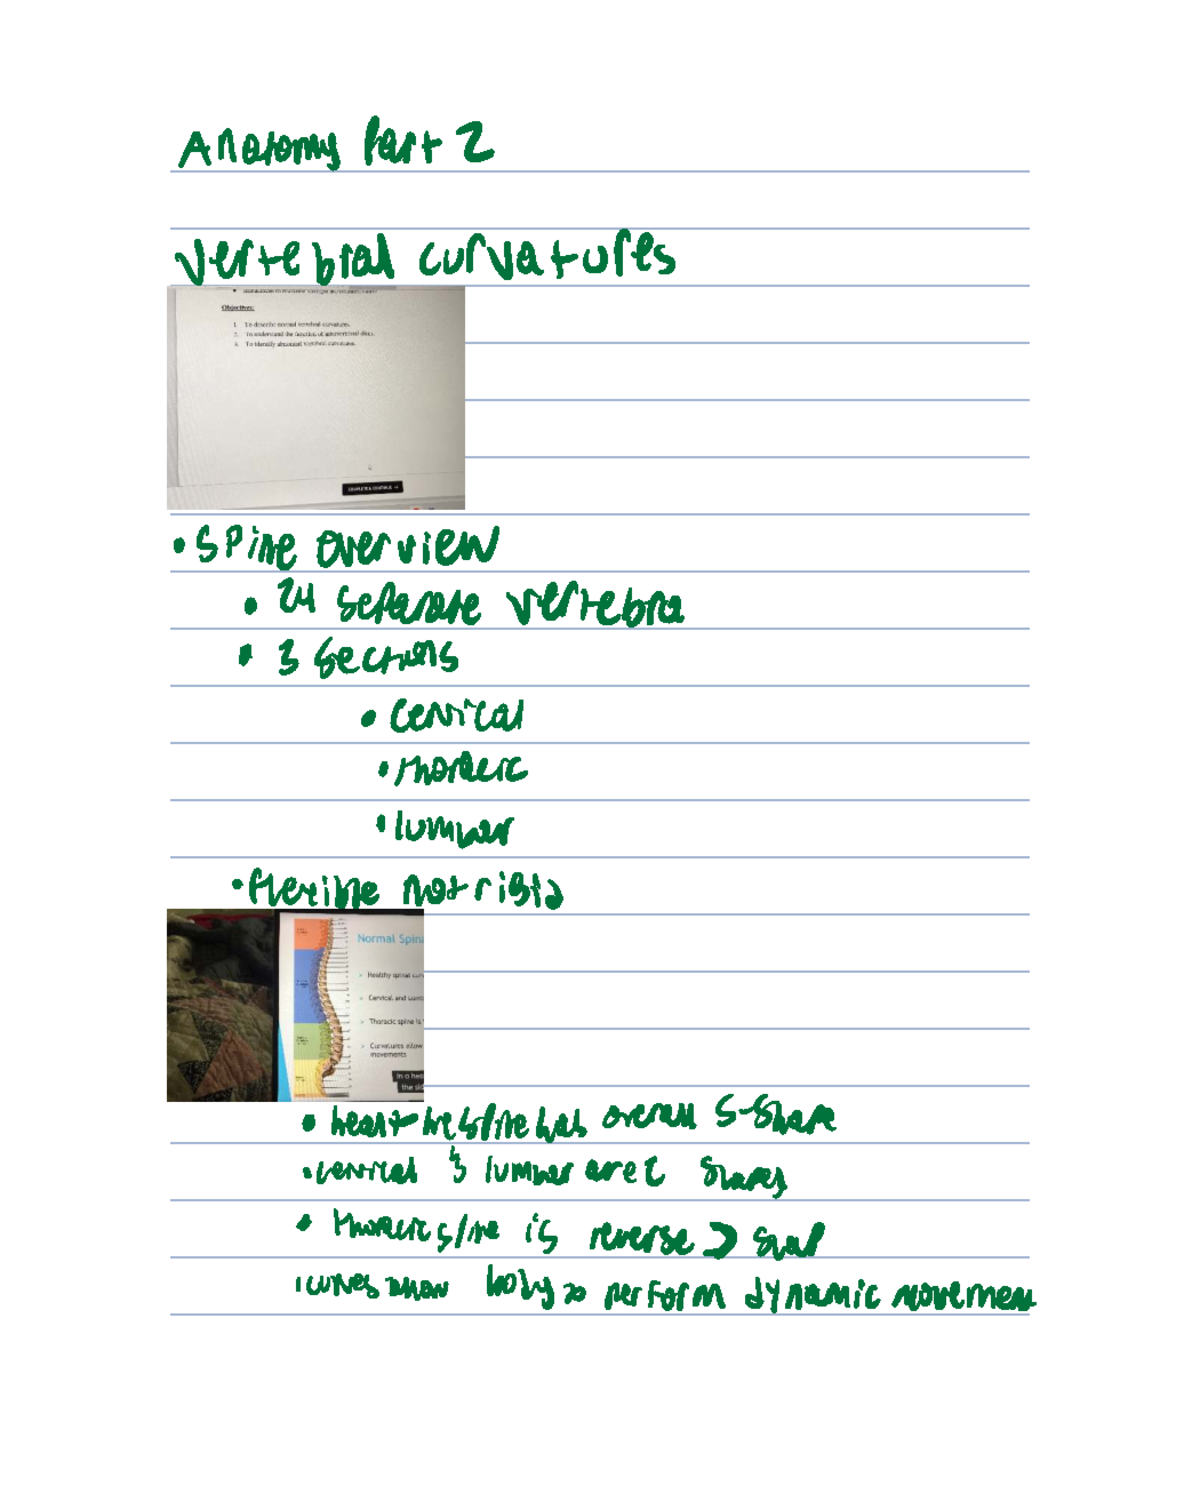 Anatomy Part 2
vertebral curvatures
Objectives:
1. To describe normal vertebral curvatures.
2. To understand the function of intervertebral discs.
3. To identify abnormal vertebral curvatures.
COMPLETE & CONTINUE →
• Spine overview
• 24 separate vertebra
• 3 sections
• cervical
• thoracic
• lumbar
• flexible not rigid
Normal Spin
> Healthy spinal cur
> Cervical and lum
> Thoracic spine is
> Curvatures allow
movements
In a hea
the sid
• spine has overall S-shape
• cervical & lumbar are C shapes
• thoracic spine is reverse
• curves allow body to perform dynamic movement